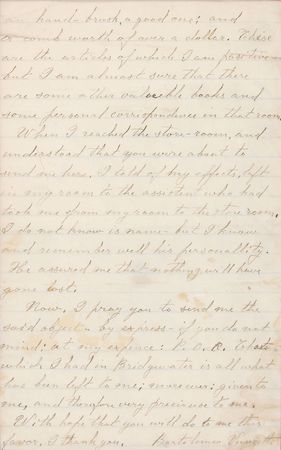 an hand-brush, a good one; and
a comb worth of over a dollar. These
are the articles of which I am positive -
but I am almost sure that there
are some other valueble books and
some personal correspondence in that room.
When I reached the store-room, and
understood that you were about to
send me here, I told of my effects, left
in my room to the assistent who had
took me from my room to the store room.
I do not know is name - but I know
and remember well his personality.
He assured me that nothing will have
gone lost.
Now, I pray you to send me the
said object - by express - if you do not
mind: at my expence: C.O.D. That
which I had in Bridgwater is all what
has been left to me; moreover: given to
me, and therefore very preciuse to me.
With hope that you will do to me this
favor, I thank you. Bartolomeo Vanzetti